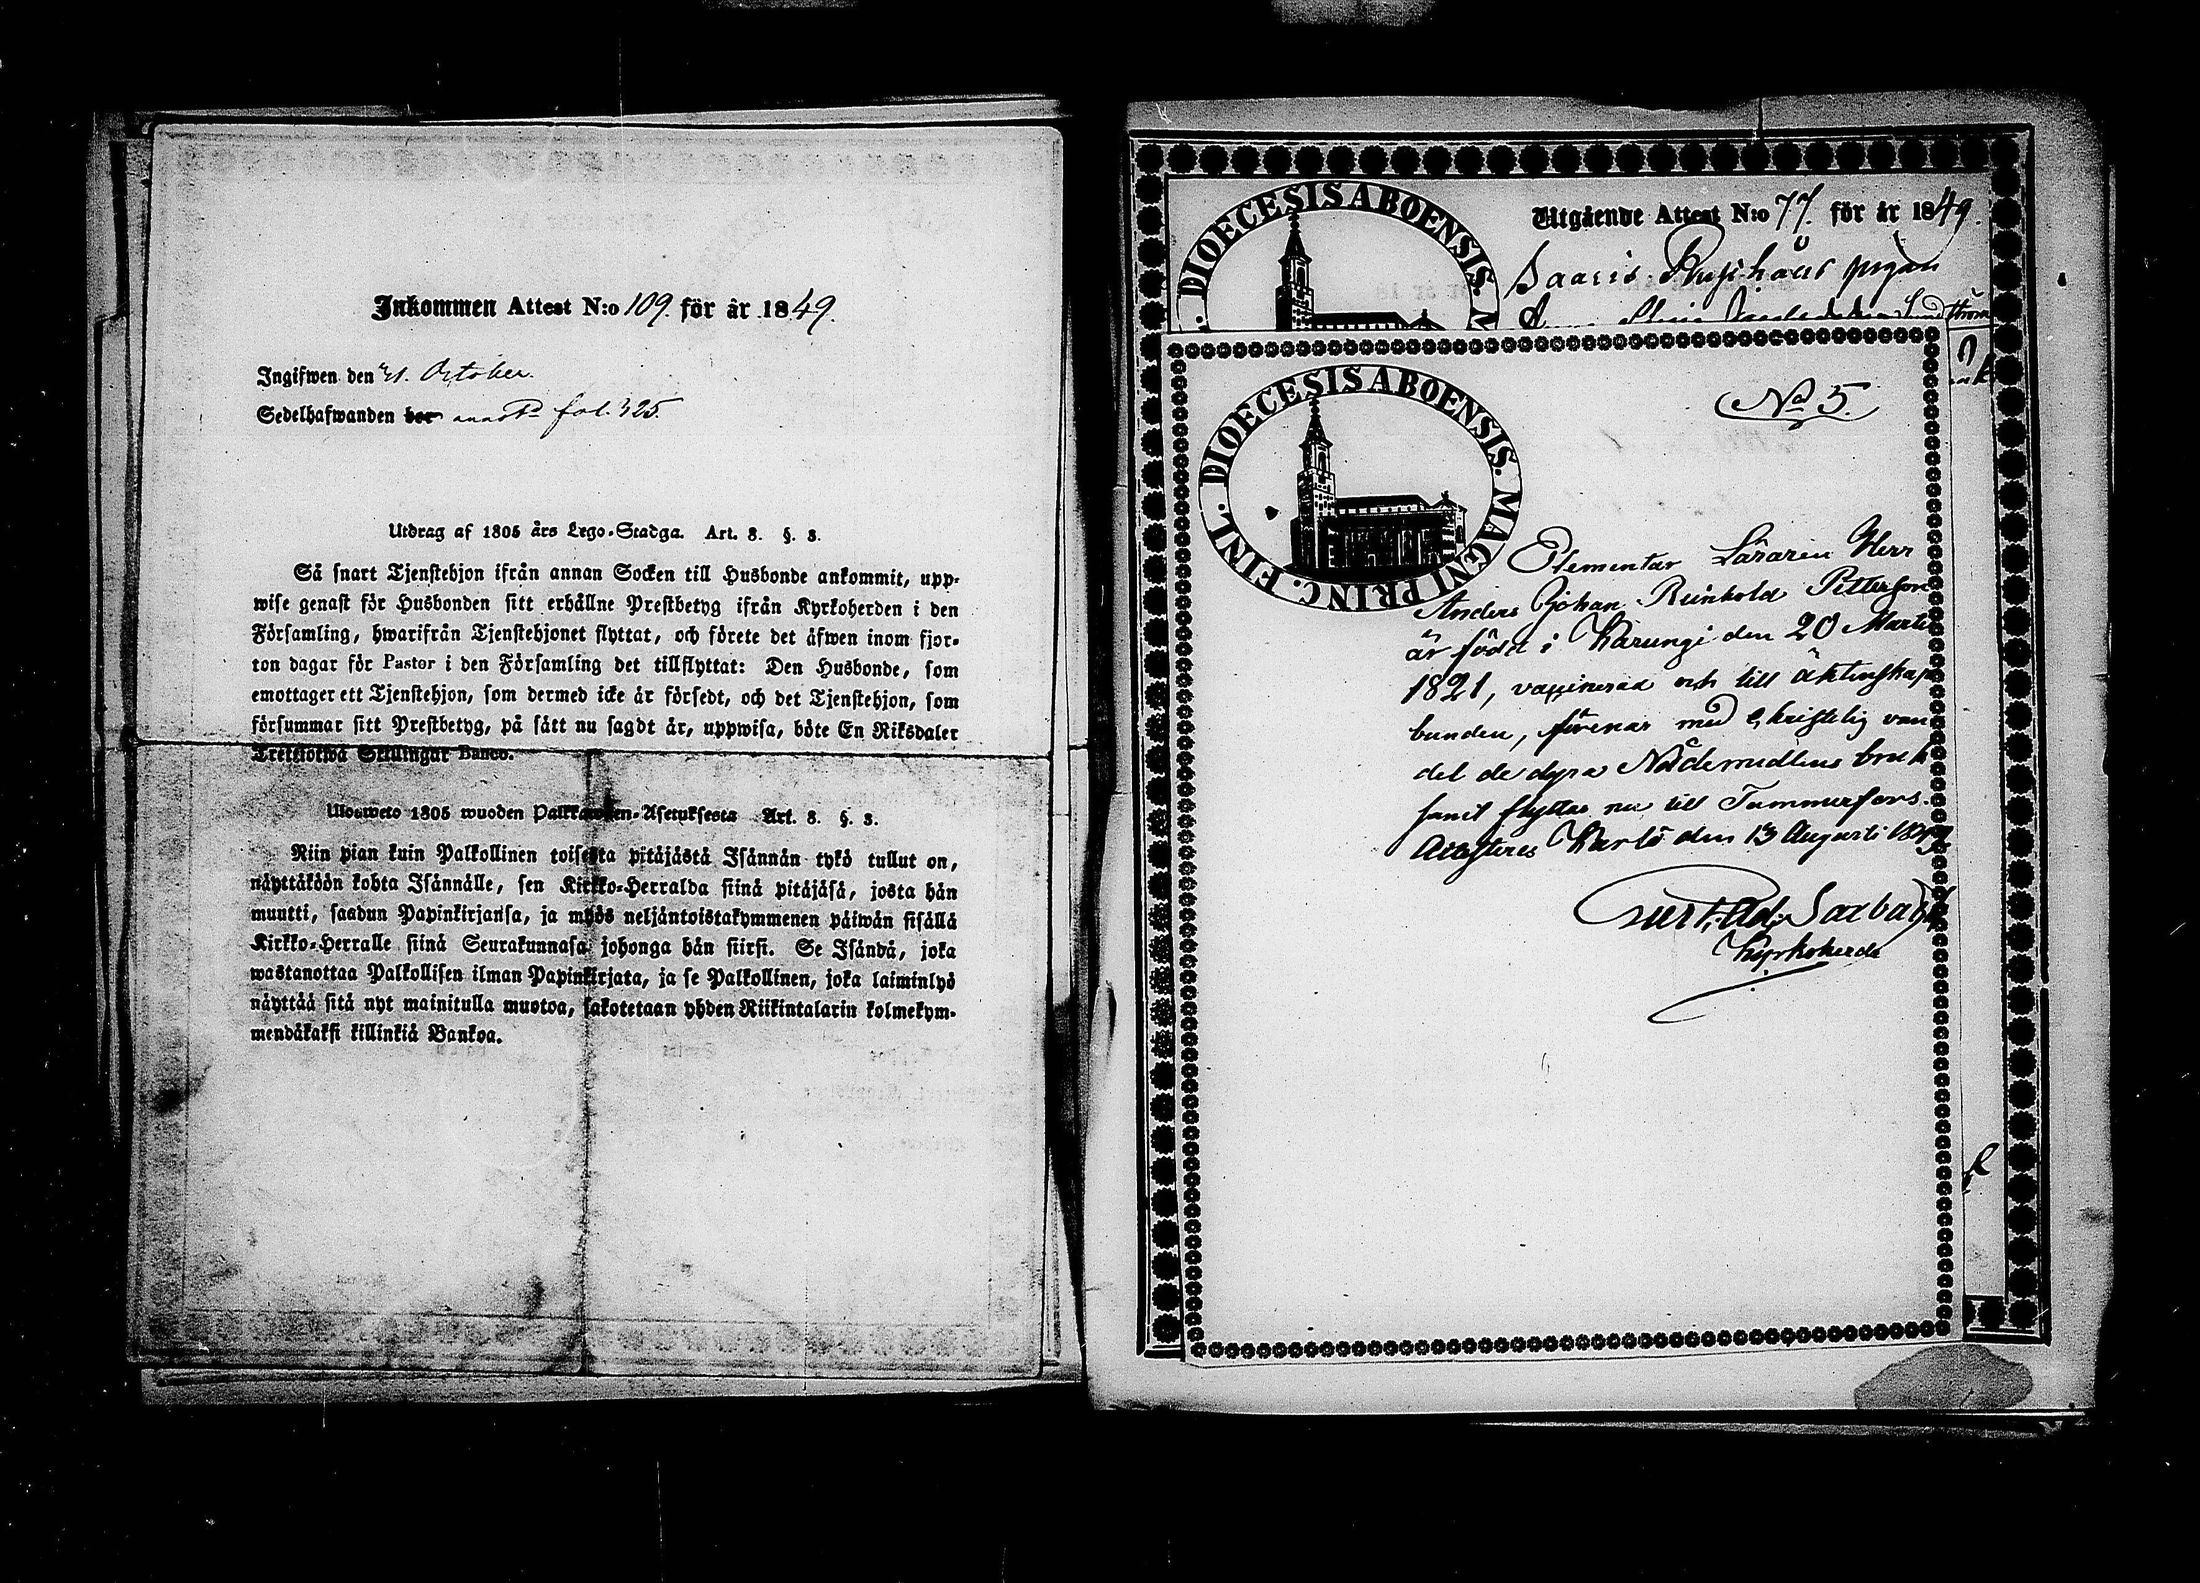 Inkommen Attest N:o 109. för år 1849.
Ingifwen den 21. October.
Sedelhafwanden bor fol. 325.
Utdrag af 1805 års Lego-Stadga. Art. 8. §. 8.
Så snart Tjenstehjon ifrån annan Socken till Husbonde ankommit, upp-
wise genast för Husbonden sitt erhållne Prestbetyg ifrån Kyrkoherden i den
Församling, hwarifrån Tjenstehjonet flyttat, och förete det äfwen inom fjor-
ton dagar för Pastor i den Församling det tillflyttat: Den Husbonde, som
emottager ett Tjenstehjon, som dermed icke är försedt, och det Tjenstehjon, som
försummar sitt Prestbetyg, på sätt nu sagdt är, uppwisa, böte En Riksdaler
Trettiotwå Skillingar Banco.
Ulosweto 1805 wuoden Palkkawäen-Asetuksesta Art. 8. §. 8.
Niin pian kuin Palkollinen toisesta pitäjästä Isännän tykö tullut on,
näyttäköön kohta Isännälle, sen Kirkko-Herralda siinä pitäjäsä, josta hän
muutti, saadun Papinkirjansa, ja myös neljäntoistakymmenen päiwän sisällä
Kirkko-Herralle siinä Seurakunnasa johonga hän siirsi. Se Isändä, joka
wastanottaa Palkollisen ilman Papinkirjata, ja se Palkollinen, joka laiminlyö
näyttää sitä nyt mainitulla muotoa, sakotetaan yhden Riikintalarin kolmekym-
mendäkaksi killinkiä Bankoa.
DIOECESIS ABOENSIS. M
Utgående Attest N:o 77. för år 1849.
Saaris pigan
ström
DIOECESIS ABOENSIS. MAGNI PRINC. FINL.
No 5.
Elementar Läraren Herr
Anders Johan Reinhold Petterson
är född i Karungi den 20 Martii
1821, vaccinerad och till äktenskap
bunden, förenar med Christelig van
del de dyra Nådemedlens bruk
samt flyttar nu till Tammerfors.
Attesteres Karlö den 13 Augusti 1849
Curt. Ad. Saxbäck
Kyrkoherde